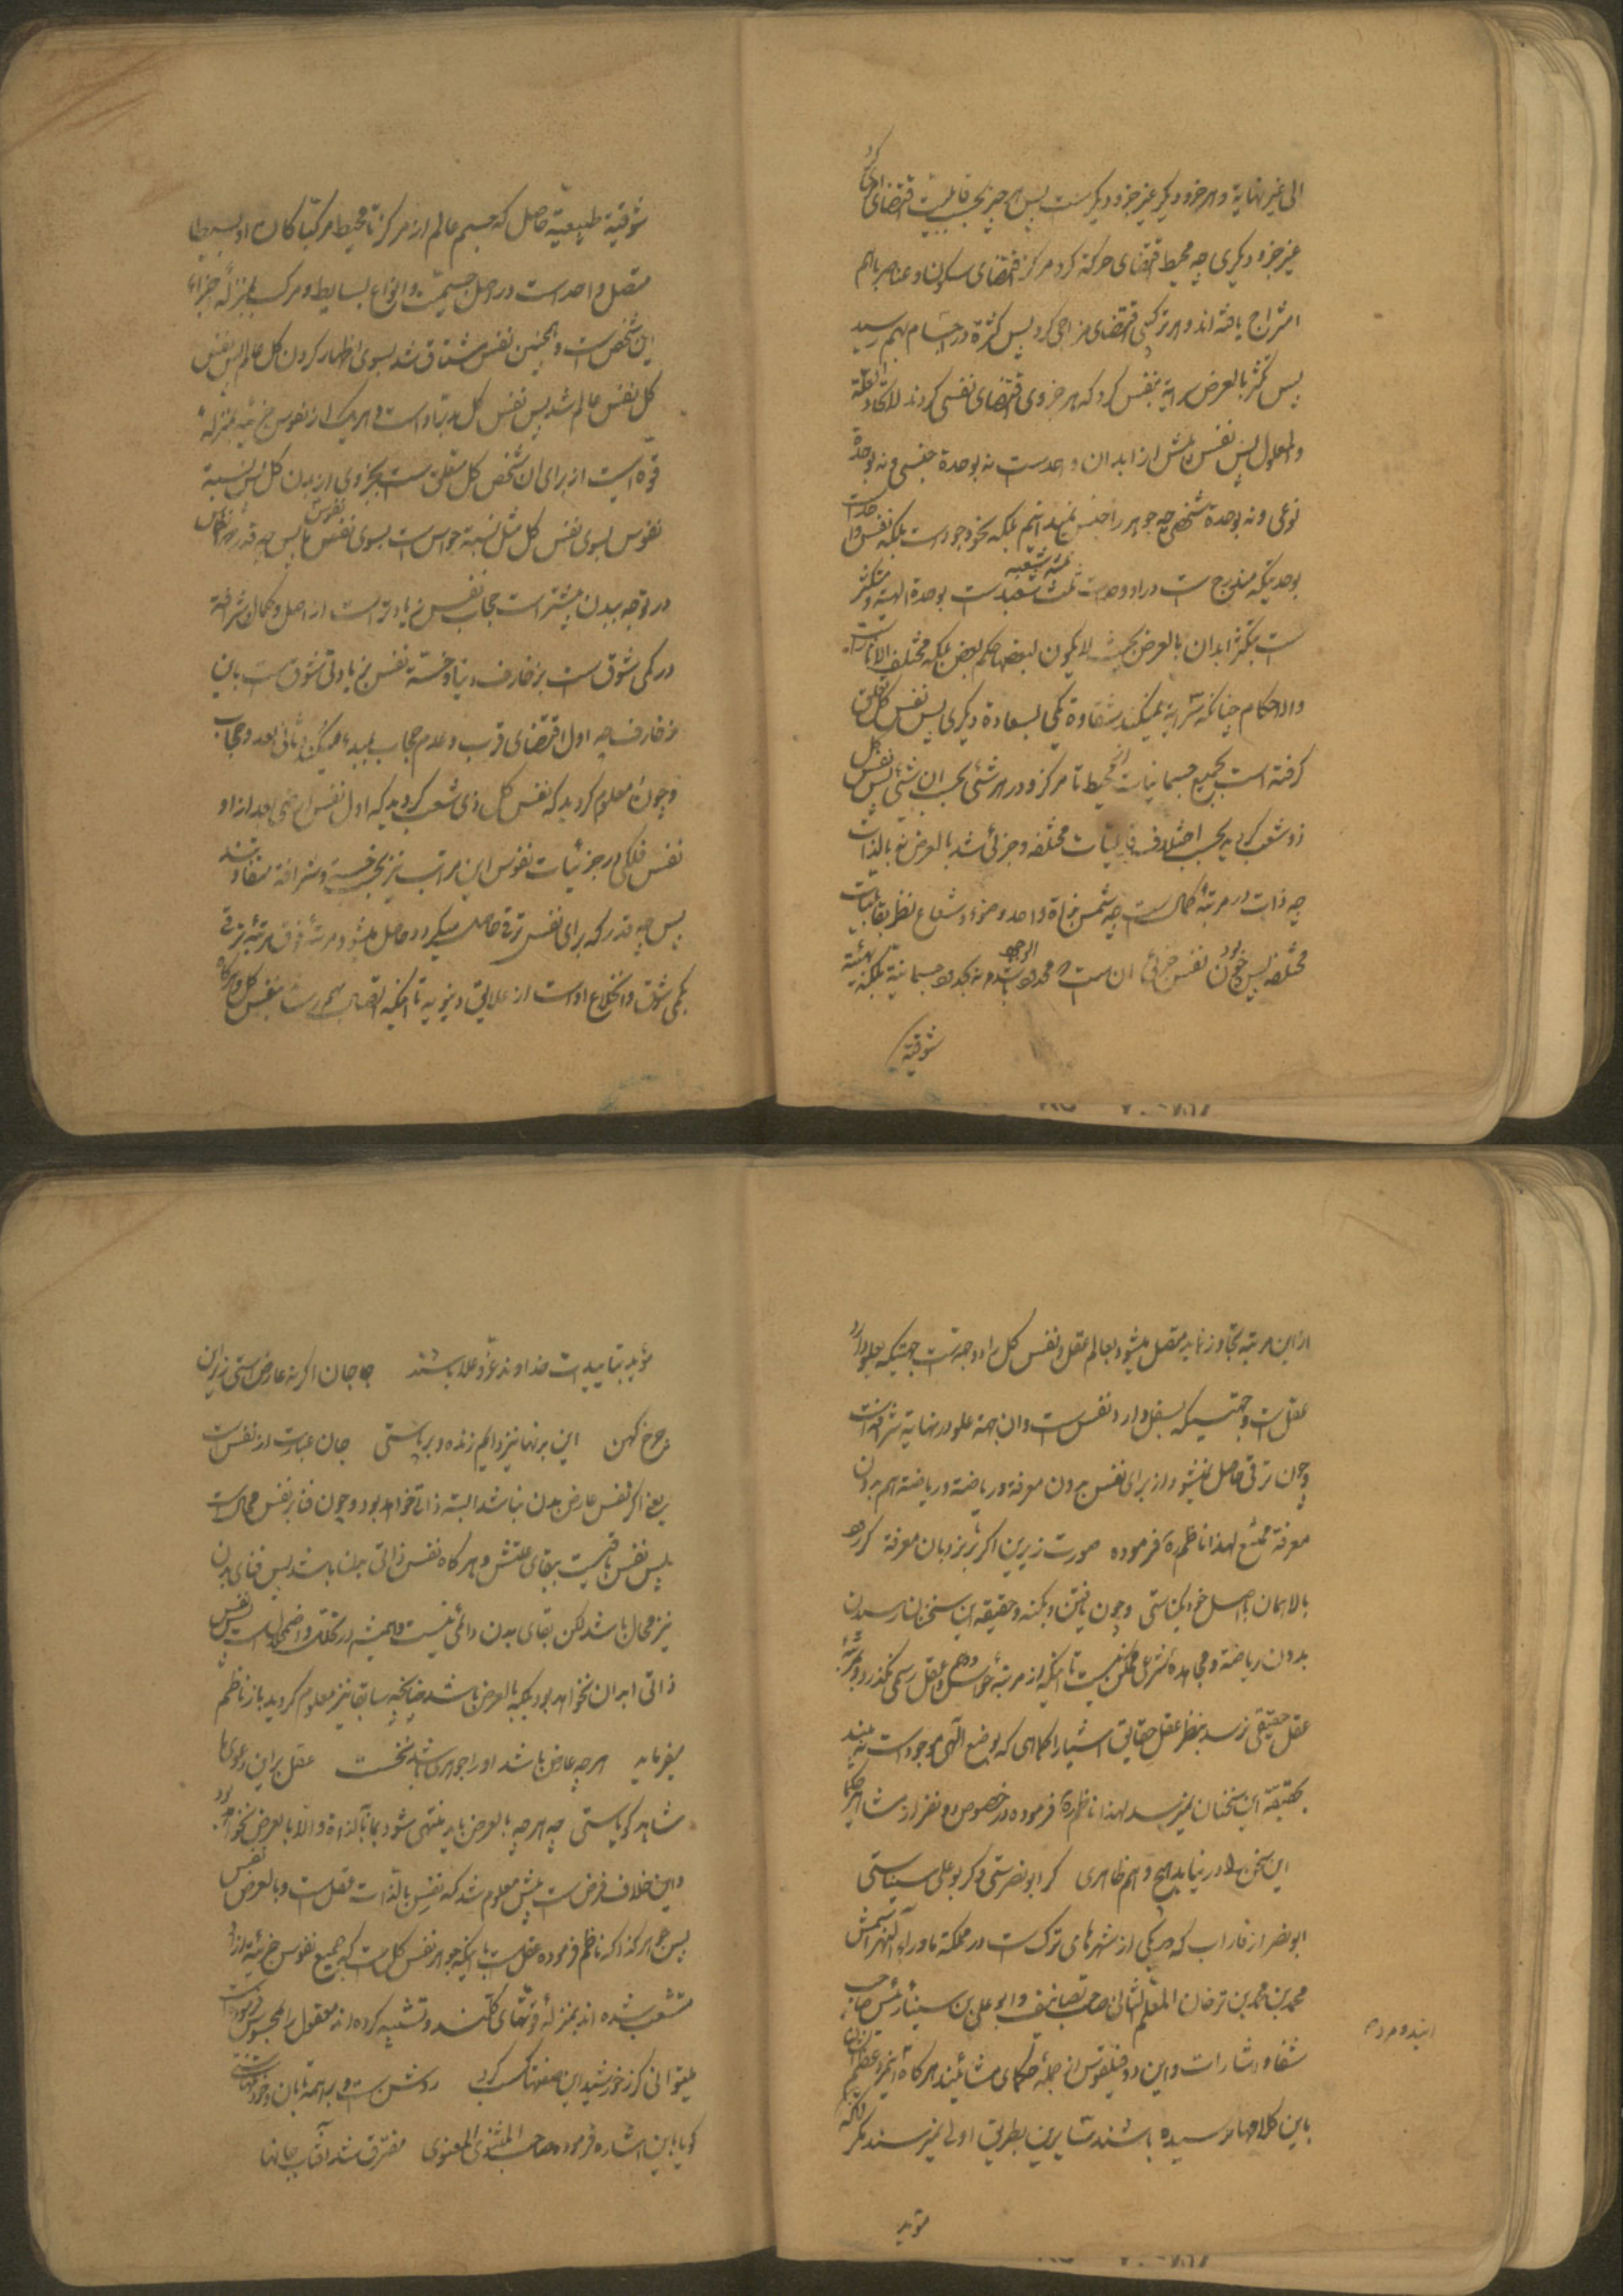 الی غیر نهایة و هر جزو دیگر غیر جزو دیگرست پس هر چیز بحسب قابلیت اقتضای
غیر جزو دیگری چه محیط اقتضای حرکة کرد مرکز اقتضای سکون و عناصر باهم
امتزاج یافته اند و هر ترکیبی اقتضای مزاجی کرد پس کثرة در اجسام بهم رسید
پس تکثر بالعرض سرایة بنفس کرد که هر جزوی اقتضای نفسی کردند لاتحاد العلة
والمعلول پس نفس پیش از ابدان واحدست نه بوحدة جنسی و نه بوحدة
نوعی و نه بوحدة شخصی چه جوهر را جنس نمیدانیم بلکه نحو وجودست بلکه نفس واحدست
بوحدتیکه مندرج ست در او وحدت بوحدة الهیة و متکثر
ست بتکثر ابدان بالعرض بحیث لایکون لبعضها حکم بعض بلکه مختلف الاثار است
والاحکام چنانکه سرایة نمیکند شقاوة یکی بسعادة دیگری پس نفس کل تعلق
گرفته است بجمیع جسمانیات از محیط تا مرکز و در هر شئی بحسب ان شئی پس نفس کل
ذو شعب گردید بحسب اختلاف قابلیات مختلفه و جزئی شد بالعرض نه بالذات
چه ذات در مرتبهٔ کمال ست چه شمس بذاة واحد و ضوء و شعاع نظر بقابلیات
مختلفه پس چون نفس جزئی ان ست که محدود نه بحدود جسمانیة بلکه بهیئة
شوقیة
شوقیة طبیعیة حاصل که جسم عالم از مرکز تا محیط مرکبا کان او بسیطا
متصل واحد است در اصل جسمیت و انواع بسایط و مرکب بمنزلهٔ اجزاء
این شخص ست و همچنین نفس مشتاق شد بسوی اظهار کردن کل عالم پس نفس
کل نفس عالم شد پس نفس کل مدبر او است و هریک از نفوس جزئیه بمنزله
قوه است از برای ان شخص کل متعلق ست بجزوی از بدن کل پس نسبة
نفوس بسوی نفس کل مثل نسبة حواس ست بسوی نفس ما پس چه قدر که نفوس
در توجه ببدن بیشتر است حجاب نفس زیادتر است از اصل و کمال شرافة
در کمی شوق ست بزخارف دنیا و خسة نفس بزیادتی شوق ست باین
زخارف چه اول اقتضای قرب و عدم حجاب بمبدء میکند و ثانی بعد و حجاب
و چون معلوم گردید که نفس کل ذی شعب گردید که اول نفس ارضی بعد از او
نفس فلکی در جزئیات نفوس این مراتب نیز بحسب خسة و شرافة متفاوتند
پس چه قدر که برای نفس ترقی حاصل میگردد حاصل میشود مرتبهٔ فوق مرتبهٔ ترقی
بکمی شوق و انخلاع او است از علایق دنیویه تا اینکه اتصال بهم رساند بنفس کل و هرگاه
از این مرتبه تجاوز نماید متصل میشود بعالم عقل و نفس کل را دو جهة ست جهتیکه بعلو دارد
عقل ست و جهتیکه بسفل دارد نفس ست و ان جهة علو در نهایة شرافة است
و چون ترقی حاصل نمیشود از برای نفس بدون معرفة و ریاضة و ریاضة هم بدون
معرفة ممتنع لهذا ناظم ره فرموده صورت زیرین اگر با نردبان معرفة
بالا همان با اصل خود یکتاستی و چون یافتن و بکنه و حقیقه این سخنان رسیدن
بدون ریاضة و مجاهدهٔ شرعی ممکن نیست تا اینکه از مرتبهٔ حواس و وهم و عقل رسمی نگذرد و بمرتبهٔ
عقل حقیقی نرسد بنظر عقل حقایق اشیا را کماهی که بوضع الهی موجود است نه بیند
بحقیقة این سخنان نمیرسد لهذا ناظم ره فرموده در خصوص دو نفر از مشاهیر حکما
این سخن را در نیابد هیچ وهم ظاهری گر ابو نصرستی و گر بوعلی سیناستی
ابو نصر از فاراب که یکی از شهرهای ترک ست در مملکة ماوراء النهر اسمش
محمد بن محمد بن ترخان المعلم الثانی صاحب تصانیف و ابو علی بن سینا رئیس صاحب
شفا و اشارات و این دو فیلقوس از جملهٔ حکمای مشائیند هرگاه
باین کلامها نرسیده باشند سایرین بطریق اولی نمیرسند مگر انکه
مؤید
مؤید بتاییدات خداوند عز و علا باشند جان اگر نه عارض استی زیر این
چرخ کهن این بدنها نیز دایم زنده و برپاستی جان عبارت از نفس ست
یعنی اگر نفس عارض بدن نباشد البته ذاتی خواهد بود و چون فنا بر نفس محال ست
پس نفس باقیست ببقای علتش و هرگاه نفس ذاتی بدن باشد پس فنای بدن
نیز محال باشد لکن بقای بدن دائمی نیست و همیشه در تخلل و اضمحلال ست پس نفس
ذاتی ابدان نخواهد بود بلکه بالعرض باشد چنانچه سابقا نیز معلوم گردید باز ناظم
میفرماید هر چه عارض باشد او را جوهری باید نخست عقل بر این دعوی ما
شاهد گویاستی چه هر چه بالعرض باید منتهی شود بما بالذاة و الا بالعرض نخواهد بود
و این خلاف فرض ست پیش معلوم شد که نفس بالذات عقل ست و بالعرض نفس
پس جوهر کذا که ناظم فرموده عقل ست یا اینکه جوهر نفس کل ست که جمیع نفوس جزئیه از او
منشعب شده اند بمنزلهٔ قوتهای کلیند و تشبیه کرده اند معقول را بمحسوس و فرموده است
میتوانی گر ز خورشید این صفتها کسب کرد روشن ست و بر همه تابان و خود تنهاستی
گویا باین اشاره فرموده صاحب المثنوی المعنوی مفترق شد آفتاب جانها